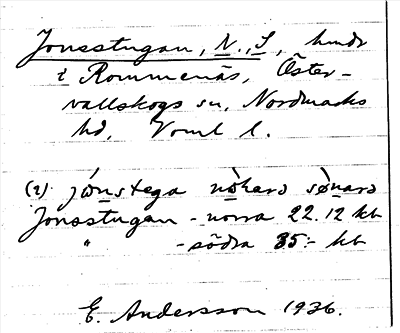 Jonsstugan, N., S, hmdr
i Rommenäs, Öster-
vallskogs sn, Nordmarks
hd, Vrml l.
(2) jònstega nòkarə sø̀narə
Jonsstugan - norra 22.12 kb
" - södra 35:- kb
E. Andersson 1936.